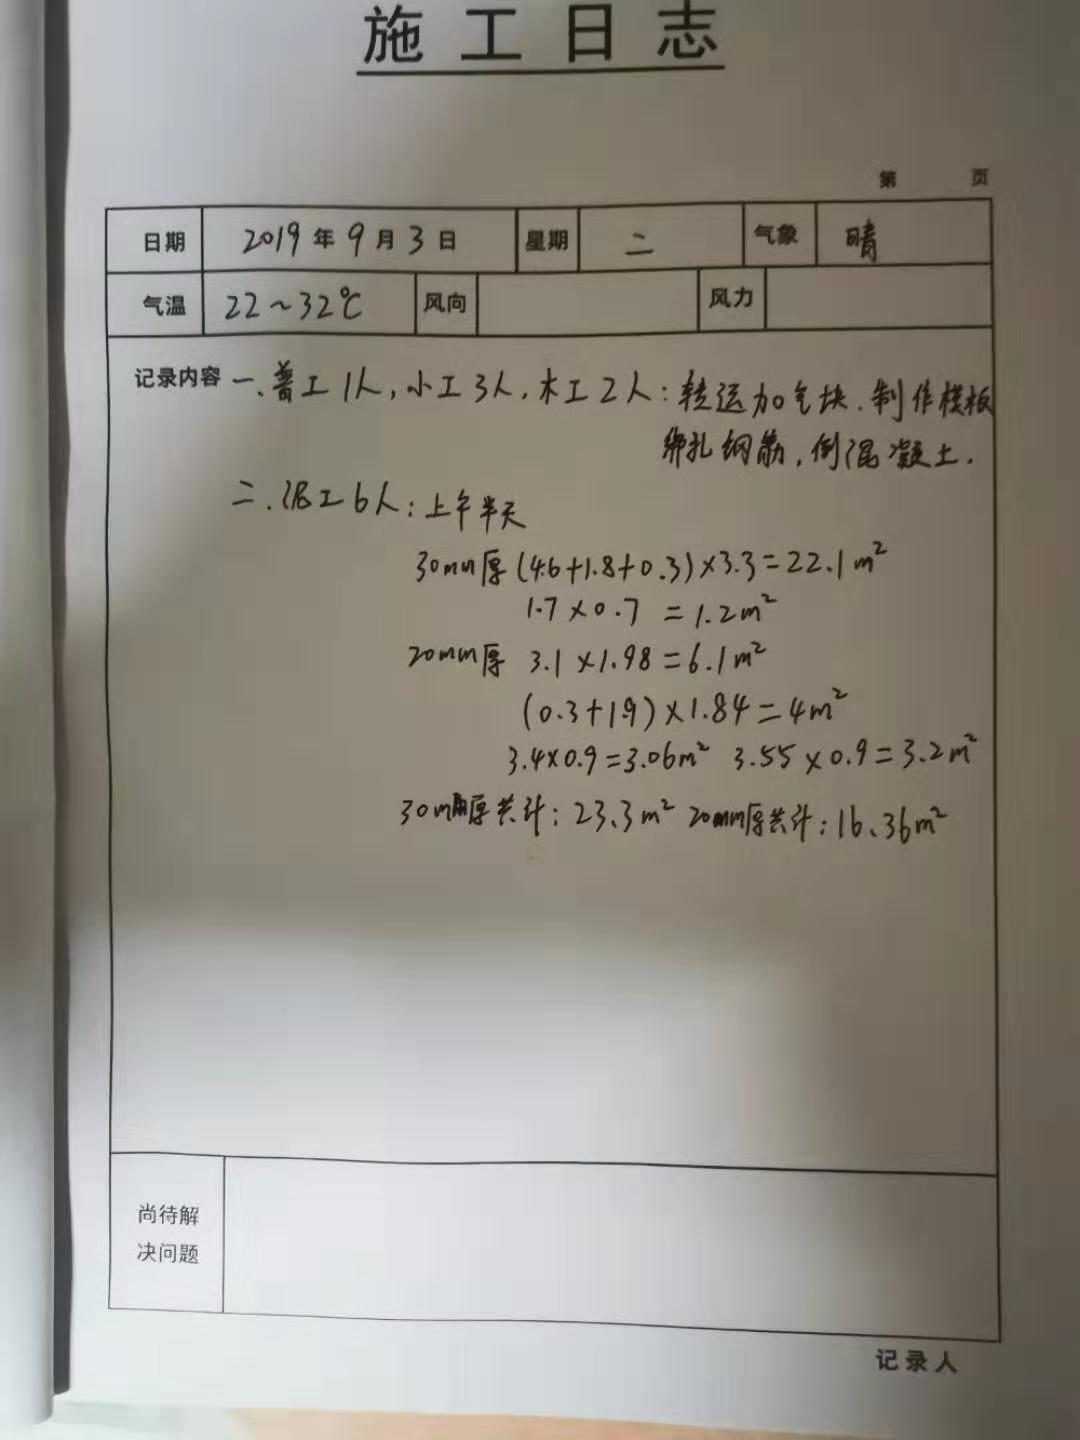 施工日志
第 页
日期 2019年9月3日 星期 二 气象 晴
气温 22~32℃ 风向 风力
记录内容 一、普工1人,小工3人,木工2人:转运加气块.制作模板
绑扎钢筋,倒混凝土.
二.泥工6人:上午半天
30mm厚(4.6+1.8+0.3)×3.3=22.1m²
1.7×0.7=1.2m²
20mm厚 3.1×1.98=6.1m²
(0.3+1.9)×1.84=4m²
3.4×0.9=3.06m² 3.55×0.9=3.2m²
30mm厚共计:23.3m² 20mm厚共计:16.36m²
尚待解
决问题
记录人